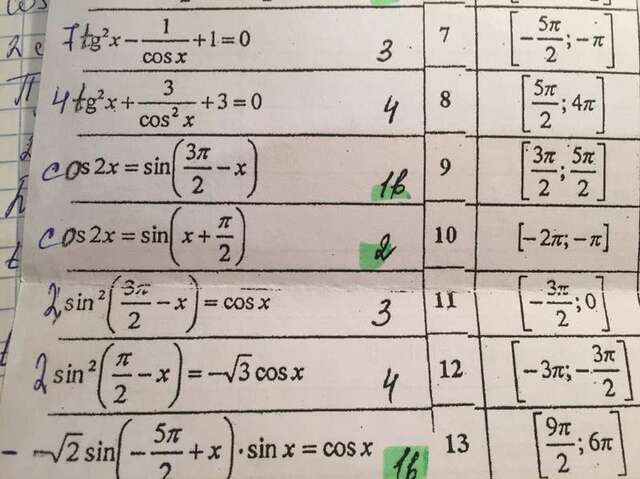 7tg²x − 1/cos x + 1 = 0 3 7 [−5π/2; −π]
4tg²x + 3/cos²x + 3 = 0 4 8 [5π/2; 4π]
cos 2x = sin(3π/2 − x) 1б 9 [3π/2; 5π/2]
cos 2x = sin(x + π/2) 2 10 [−2π; −π]
2 sin²(3π/2 − x) = cos x 3 11 [−3π/2; 0]
2 sin²(π/2 − x) = −√3 cos x 4 12 [−3π; −3π/2]
− −√2 sin(−5π/2 + x) · sin x = cos x 1б 13 [9π/2; 6π]